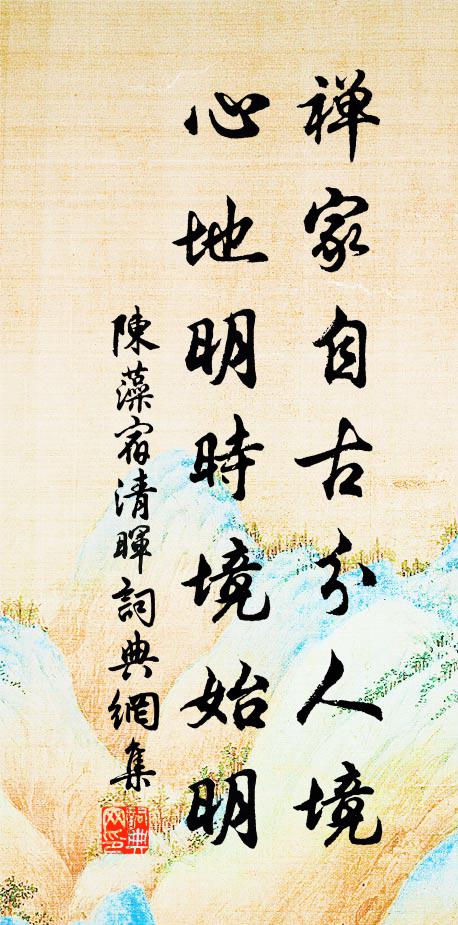 禅家自古分人境
心地明時境始明
陳藻宿清暉詞典網集